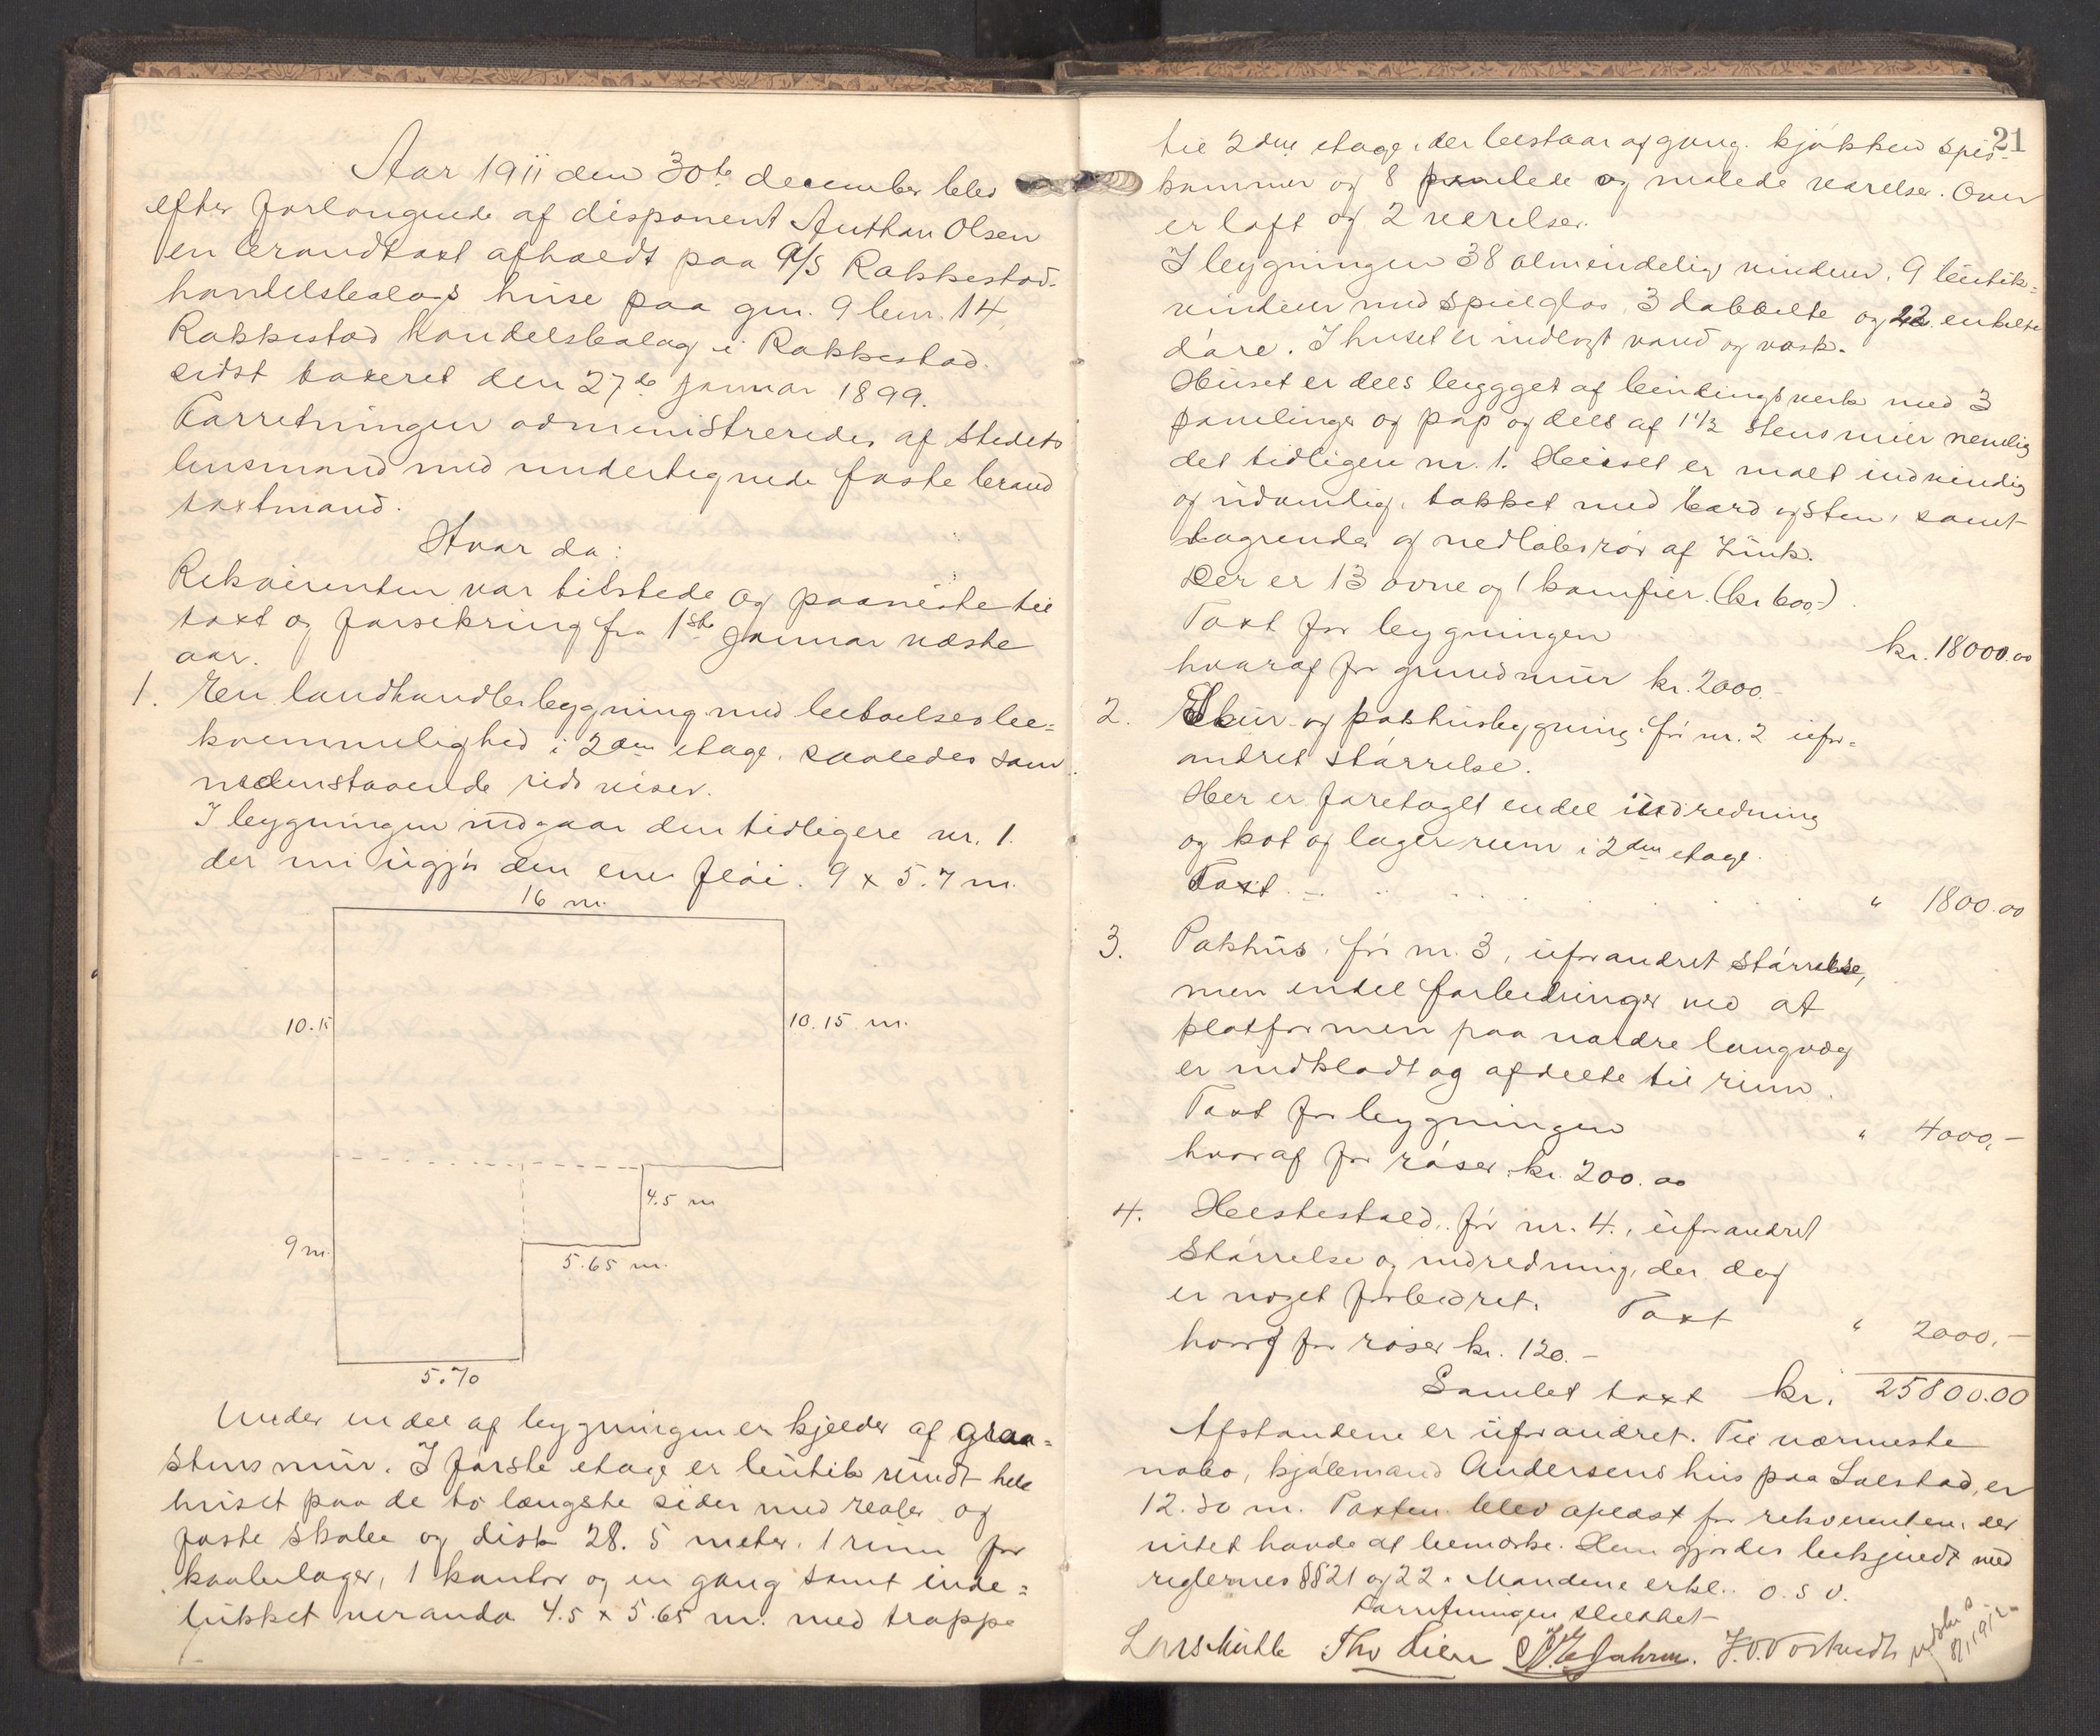 Aar 1911 den 30te december blev
efter forlangende af disponent Anthon Olsen
en brandtaxt afholdt paa A/S Rakkestad
handelsbolags huse paa gn. 9 bnr. 14,
Rakkestad handelsbolag i Rakkestad.
sidst taxeret den 27de januar 1899.
Forretningen administreredes af stedets
lensmand med undertegnede faste brand
taxtmænd.
Hvor da:
Rekvirenten var tilstede og paaviste til
taxt og forsikring fra 1ste januar næste
aar.
1. En landhandlerbygning med beboelsesbe=
kvemmelighed i 2den etage, saaledes som
nedenstaaende rids viser.
I bygningen indgaar den tidligere nr. 1.
der nu utgjør den ene fløi. 9 x 5.7 m.
16 m.
10.15
10.15 m.
4.5 m
9 m.
5.65 m.
5.70
Under en del af bygningen er kjelder af graa=
stens mur. I første etage er butik rundt hele
huset paa de to længste sider med reoler og
faste skabe og disk 28.5 meter, 1 rum for
kaalulager, 1 kontor og en gang samt inde=
lukket veranda 4.5 x 5.65 m. med trappe
21
til 2den etage, der bestaar af gang, kjøkken spis-
kammer og 8 panelede og malede værelser. Over
er loft og 2 værelser.
I bygningen 38 almindelig vinduer, 9 butik=
vinduer med speilglas, 3 dobbelte og 22 enkelte
døre. I huset er indlagt vand og vask.
Huset er dels bygget af bindingsverk med 3
panelinger og pap og dels af 1 1/2 stens mur nemlig
det tidligere nr. 1. Huset er malt indvendig
og udvendig, takket med bord og sten, samt
tagrender og nedløbsrør af Zink.
Der er 13 ovne og 1 komfur. (kr 600.-)
Taxt for bygningen kr. 18000.00
hvoraf for grundmur kr. 2000.-
2. Skur- og pakhusbygning. før nr. 2 ufor=
andret størrelse.
Her er foretaget endel indredning
og kot og lagerrum i 2den etage.
Taxt . . . . . . . " 1800.00
3. Pakhus, før nr. 3, uforandret størrelse,
men endel forbedringer ved at
platformen paa nordre langvæg
er indklædt og afdelte til rum.
Taxt for bygningen " 4000,-
hvoraf for røser kr. 200.00
4. Hestestald, før nr. 4., uforandret
størrelse og indredning, der dog
er noget forbedret. Taxt " 2000,-
hvoraf for røser kr. 120.-
Samlet taxt kr. 25800.00
Afstandene er uforandret. Til nærmeste
nabo, kjøbmand Andersens hus paa Solstad, er
12.80 m. Taxten blev oplæst for rekvirenten, der
intet havde at bemærke. Han gjordes bekjendt med
reglernes §§ 21 og 22. Mændene erkl. o. s. v.
Forretningen sluttet
Lars Mühle Tho Lien J. O. Fostvedt